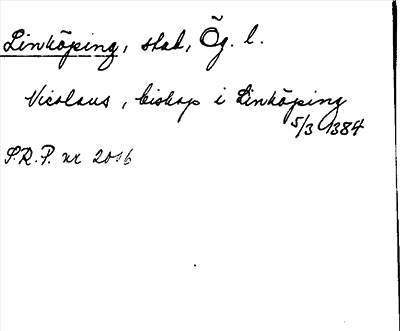 Linköping, stad, Ög. l.
Nicolaus, biskop i Linköping
5/3 1384
S.R.P. nr 2016